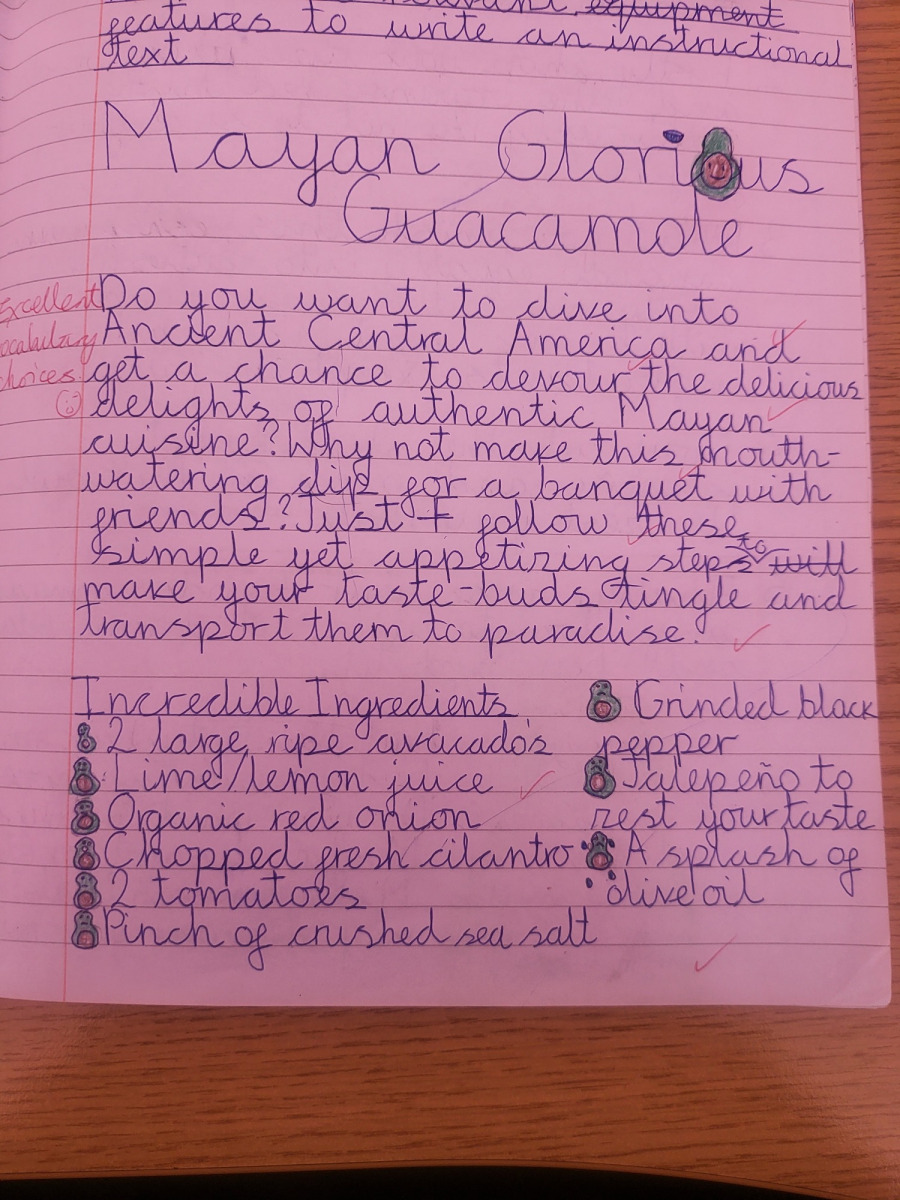 equipment
features to write an instructional
text
Mayan Glorious
Guacamole
Excellent
vocabulary
choices
Do you want to dive into
Ancient Central America and
get a chance to devour the delicious
delights of authentic Mayan
cuisine? Why not make this mouth-
watering dip for a banquet with
friends? Just follow these
simple yet appetizing steps to will
make your taste-buds tingle and
transport them to paradise.
Incredible Ingredients
2 large ripe avacado's
Lime/lemon juice
Organic red onion
Chopped fresh cilantro
2 tomatoes
Pinch of crushed sea salt
Grinded black
pepper
Jalepeño to
rest your taste
A splash of
olive oil